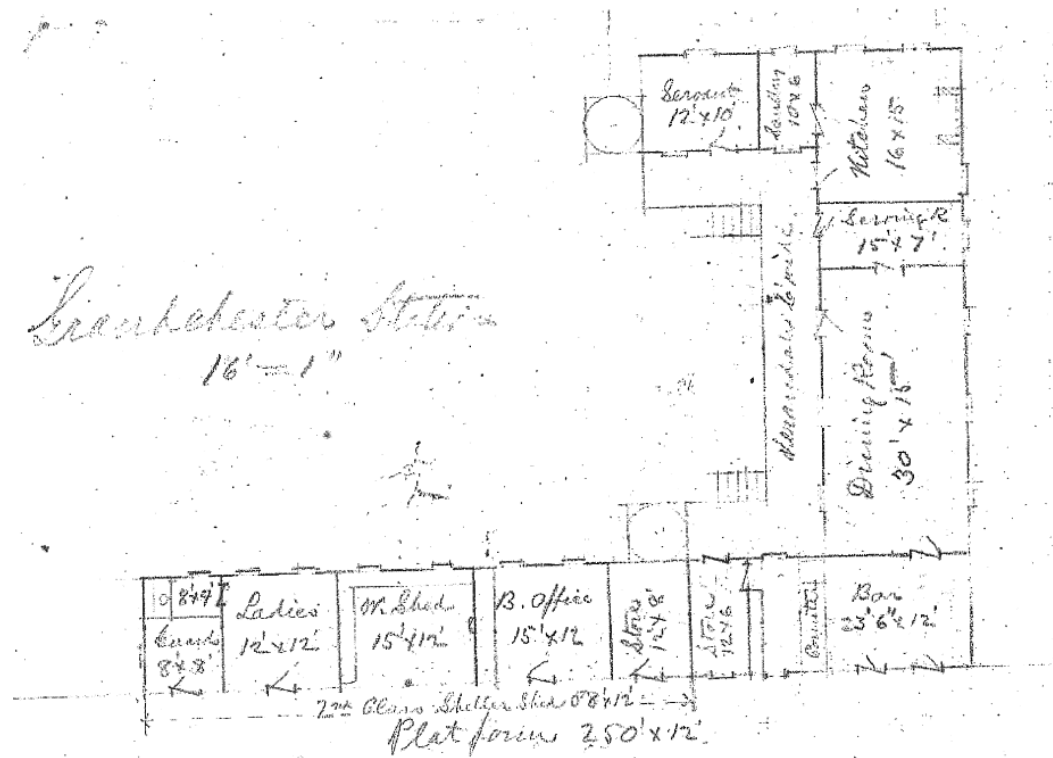 Servants
12'x10'
Laundry
10x6
Kitchen
16x15
Serving R
15'x7'
Verandah 6' wide
Grandchester Station
16' = 1"
Dining Room
30' x 15'
8'x4'
Guard
8'x8'
Ladies
12'x12'
W. Shed
15'x12'
B. Office
15'x12
Store
12'x8'
Store
12x6
Counter
Bar
23'6"x12'
2nd Class Shelter Shed 68'x12'
Platform 250'x12'